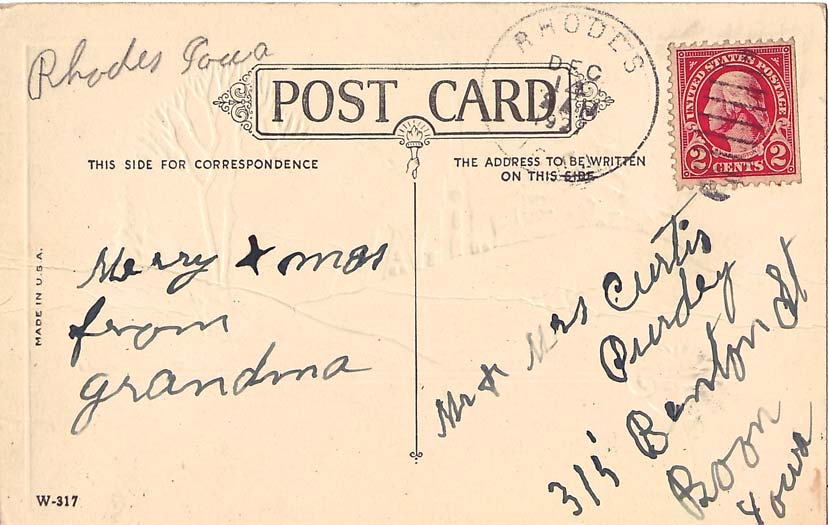 Rhodes Iowa
POST CARD
RHODES
DEC
14
UNITED STATES POSTAGE
2 CENTS 2
THIS SIDE FOR CORRESPONDENCE
THE ADDRESS TO BE WRITTEN
ON THIS SIDE
Merry Xmas
from
grandma
Mr & Mrs Curtis
Purdey
315 Benton St
Boon
Iowa
MADE IN U.S.A.
W-317